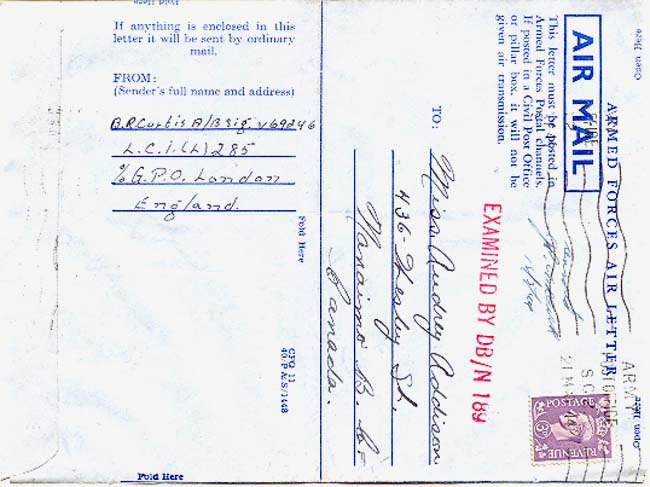 Fold Here
If anything is enclosed in this
letter it will be sent by ordinary
mail.
FROM:
(Sender's full name and address)
B.R. Curtis A/B Sig V69246
L.C.I.(L) 285
℅ G.P.O. London
England.
Fold Here
CPQ 11
40-P.&S./1448
Fold Here
Open Here
ARMED FORCES AIR LETTER
Open Here
AIR MAIL
This letter must be posted in
Armed Forces Postal channels.
If posted in a Civil Post Office
or pillar box, it will not be
given air transmission.
TO:
Miss Audrey Addison
436 - Wesley St.
Nanaimo B.C.
Canada.
EXAMINED BY DB/N 189
ARMY
POSTAGE
3D